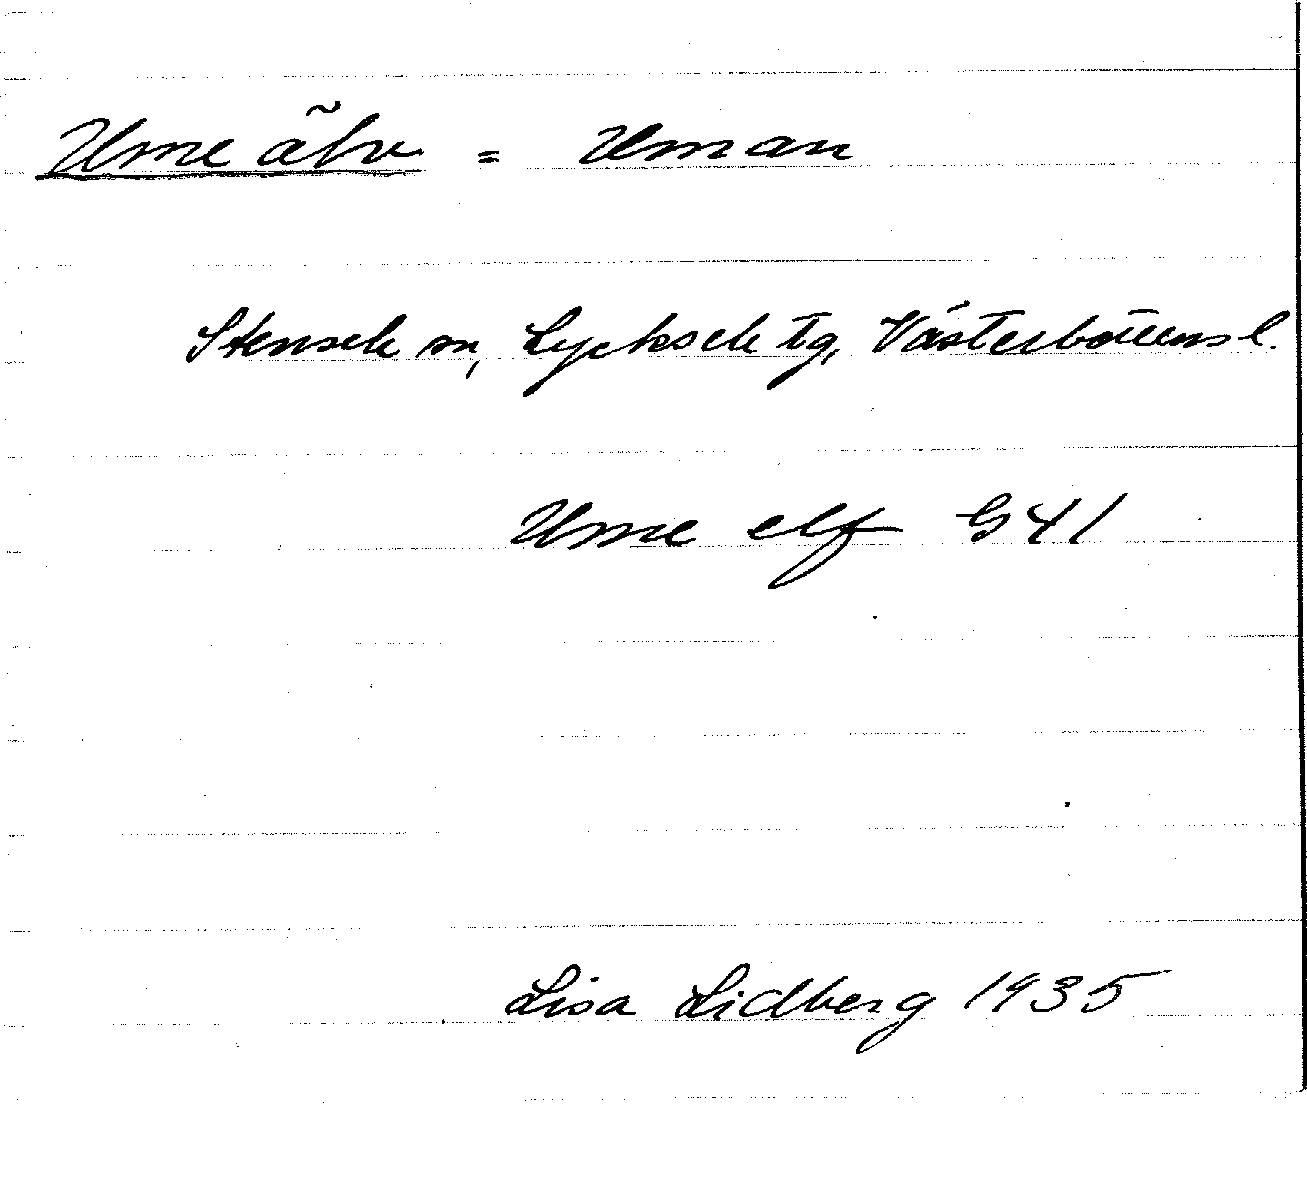 Ume älv = Uman
Stensele sn, Lycksele tg, Västerbottens l.
Ume elf G41
Lisa Lidberg 1935